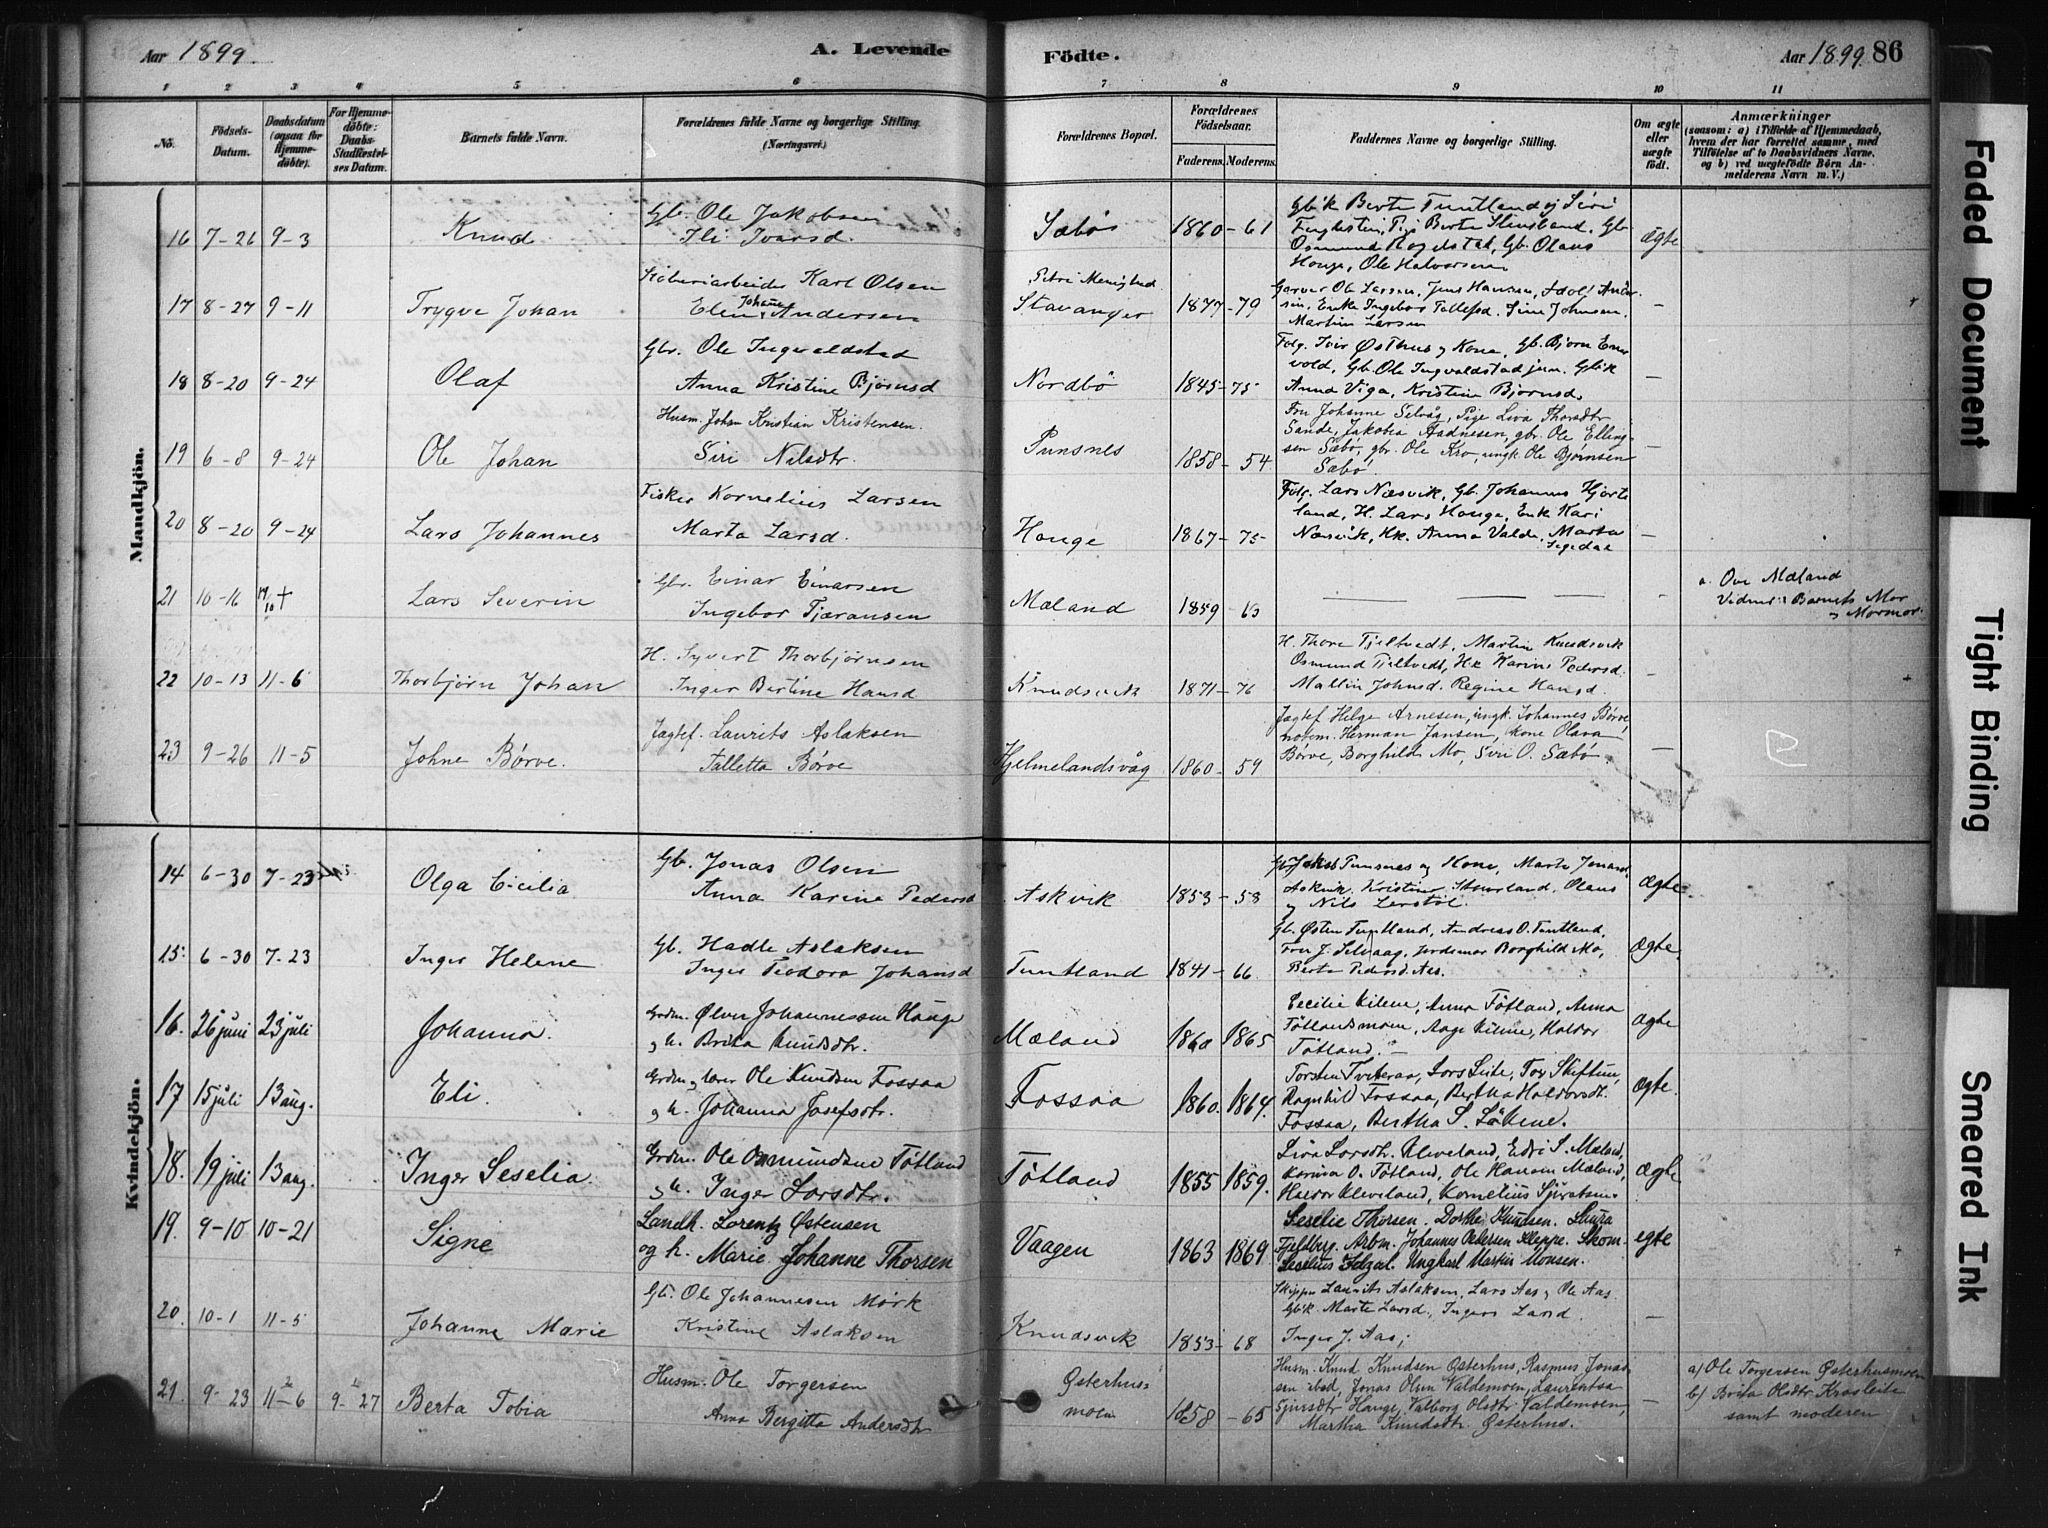 Aar 1899. A. Levende Födte. Aar 1899. 86
1 2 3 4 5 6 7 8 9 10 11
No. Födsels-Datum. Daabsdatum (ogsaa for Hjemmedöbte). For Hjemmedöbte: Daabs-Stadfæstelses Datum. Barnets fulde Navn. Forældrenes fulde Navne og borgerlige Stilling. (Næringsvei.) Forældrenes Bopæl. Forældrenes Födselsaar. Faderens. Moderens. Faddernes Navne og borgerlige Stilling. Om ægte eller uægte födt. Anmærkninger (saasom: a) i Tilfælde af Hjemmedaab, hvem der har forrettet samme, med Tilföielse af to Daabsvidners Navne, og b) ved uægtefödte Börn Anmelderens Navn m. V.)
Mandkjön.
16 7-26 9-3 Knud Gb. Ole Jakobsen
Ivarsd. Sæbø 1860-61 Gb'k Berta Tuntland, Siri
Pige Berta Stensland, Gb.
Osmund Rogelstad, Gb. Olaus
Houge, Ole Halvorsen ægte
17 8-27 9-11 Trygve Johan Karl Olsen
Elen Johanne Andersen Petri Menighed
Stavanger 1877-79 Garver Ole Larsen, Jens Hansen, Adolf Ander-
sen, Enke Ingebor Tollefsd. Sine Johnsen,
Martin Larsen —
18 8-20 9-24 Olaf Gbr. Ole Ingvaldstad
Anna Kristine Bjørnsd Nordbø 1845-75 Folg. Iver Østhus og Kone, Gb. Bjørn Ener
vold, Gb. Ole Ingvaldstad jun. Gb'k
Anna Viga, Kristine Bjornsd. —
19 6-8 9-24 Ole Johan Husm. Johan Kristian Kristensen.
Siri Nilsdtr. Punsnes 1858-54 Fru Johanne Selvåg, Pige Liva Thorsdtr
Sande, Jakobia Aadnesen, gbr. Ole Elling-
sen Sæbø, gbr. Ole Kro, ungk Ole Bjørnsen
Sæbø. —
20 8-20 9-24 Lars Johannes Fisker Kornelius Larsen
Marta Larsd. Houge 1867-75 Folg. Lars Næsvik, Gb. Johannes Hjorte
land, H. Lars Houge, Enk. Kari
Næsvik, Kk. Anna Valde, Marta
Segedal —
21 10-16 19/10 † Lars Severin Gbr. Einar Einarsen
Ingebor Tjæransen Mæland 1859-63 — — — — a. Ove Mæland
Vidner: Barnets Mor
og Mormor.
22 10-13 11-6 Thorbjørn Johan H. Syvert Thorbjørnsen
Inger Bertine Hansd Knudsvik 1871-76 H. Thore Tjeltvedt, Martin Knudsvik
Osmund Tjeltvedt, Hk Karine Pedersd.
Mallin Johnsd. Regine Hansd. —
23 9-26 11-5 Johne Børve. Jagtef. Laurits Aslaksen
Talletta Børve Hjelmelandsvåg 1860-59 Jagtef Helge Arnesen, ungk. Johannes Børve,
notem. Herman Jansen, kone Olava
Børve, Borghild Mo, Siri O. Sæbø —
Kvindekjön.
14 6-30 7-23 Olga Cicilia Gb. Jonas Olsen
Anna Karine Pedersd Askvik 1853-58 Gb. Jakob Punsnes og Kone, Marta Jonasd.
Askvik, Kristine Stuvland, Olaus
og Nils Lerstøl. Ægte
15. 6-30 7-23 Inger Helene Gb. Hadle Aslaksen
Inger Teodora Johansd Tuntland 1841-66. Gb. Østen Tuntland, Andreas O. Tuntland,
Fru J. Selvaag, Jordemor Borghild Mo,
Berta Pedersd. Aas. Ægte
16. 26 juni 23 juli Johanna. Grdm. Ølver Johannessen Hauge
og h. Brita Knudsdtr. Mæland 1860 1865 Cecilie Kilene, Anna Tøtland, Anna
Tøtlandsmoen, Aage Kilene, Haldor
Tøtland. — Ægte
17 15 juli 13 aug. Eli. Grdm og lærer Ole Knudsen Fossaa
og h. Johanna Josefsdtr. Fossaa 1860. 1864. Torsten Tveteraa, Lars Leite, Tor Skiftun,
Ragnhild Fossaa, Bertha Haldorsdt.
Fossaa, Bertha S. Løkene. Ægte.
18. 19 juli 13 aug. Inger Seselia. Grdm. Ole Osmundsen Tøtland
og h. Inger Larsdtr. Tøtland 1855 1859. Liva Larsdtr. Kleveland, Edri S. Mæland,
Karina O. Tøtland, Ole Hansen Mæland,
Haldor Kleveland, Kornelius Sjuratsen. Ægte
19. 9-10 10-21 Signe Landh. Lorentz Østensen
og h. Marie Johanne Thorsen Vaagen 1863 1869 Seselie Thorsen. Dorthe Knudsen. Laura
Fjeldberg. Arbm. Johannes Pedersen Kleppe. Skom.
Ungkarl Martin Monsen. egte
20. 10-1 11-5 Johanne Marie Gb. Ole Johannesen Mørk
Kristine Aslaksen Knudsvik 1853-68 Skipper Laurits Aslaksen, Lars Aas og Ole Aas
Gb'k. Marte Larsd, Inger Larsd.
Inger J. Aas; —
21. 9-23 11-6 9-27 Berta Tobia Husm. Ole Torgersen
Anna Bergitta Andersdtr Østerhus-
moen 1858-65 Husm. Knud Knudsen Østerhus, Rasmus Jonas-
sen ibid, Jonas Olsen Valdemoen, Laurentsa
Sjursdtr Hauge, Valborg Olsdtr Valdemoen,
Martha Knudsdtr Østerhus. a) Ole Torgersen Østerhusmoen
b) Brita Olsdtr Krosleite
samt moderen
Faded Document
Tight Binding
Smeared Ink